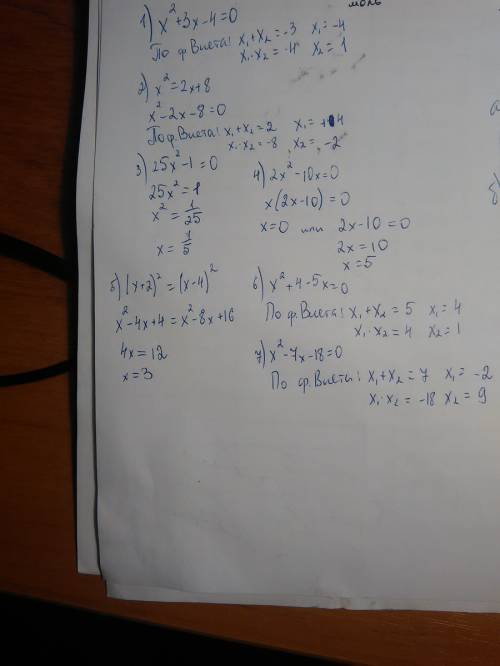 моль
1) x²+3x-4=0
По ф. Виета: x₁+x₂=-3 x₁=-4
x₁·x₂=-4 x₂=1
2) x²=2x+8
x²-2x-8=0
По ф. Виета: x₁+x₂=2 x₁=+4
x₁·x₂=-8 x₂=-2
3) 25x²-1=0
25x²=1
x²=1/25
x=1/5
4) 2x²-10x=0
x(2x-10)=0
x=0 или 2x-10=0
2x=10
x=5
5) (x+2)²=(x-4)²
x²-4x+4=x²-8x+16
4x=12
x=3
6) x²+4-5x=0
По ф. Виета: x₁+x₂=5 x₁=4
x₁·x₂=4 x₂=1
7) x²-7x-18=0
По ф. Виета: x₁+x₂=7 x₁=-2
x₁·x₂=-18 x₂=9